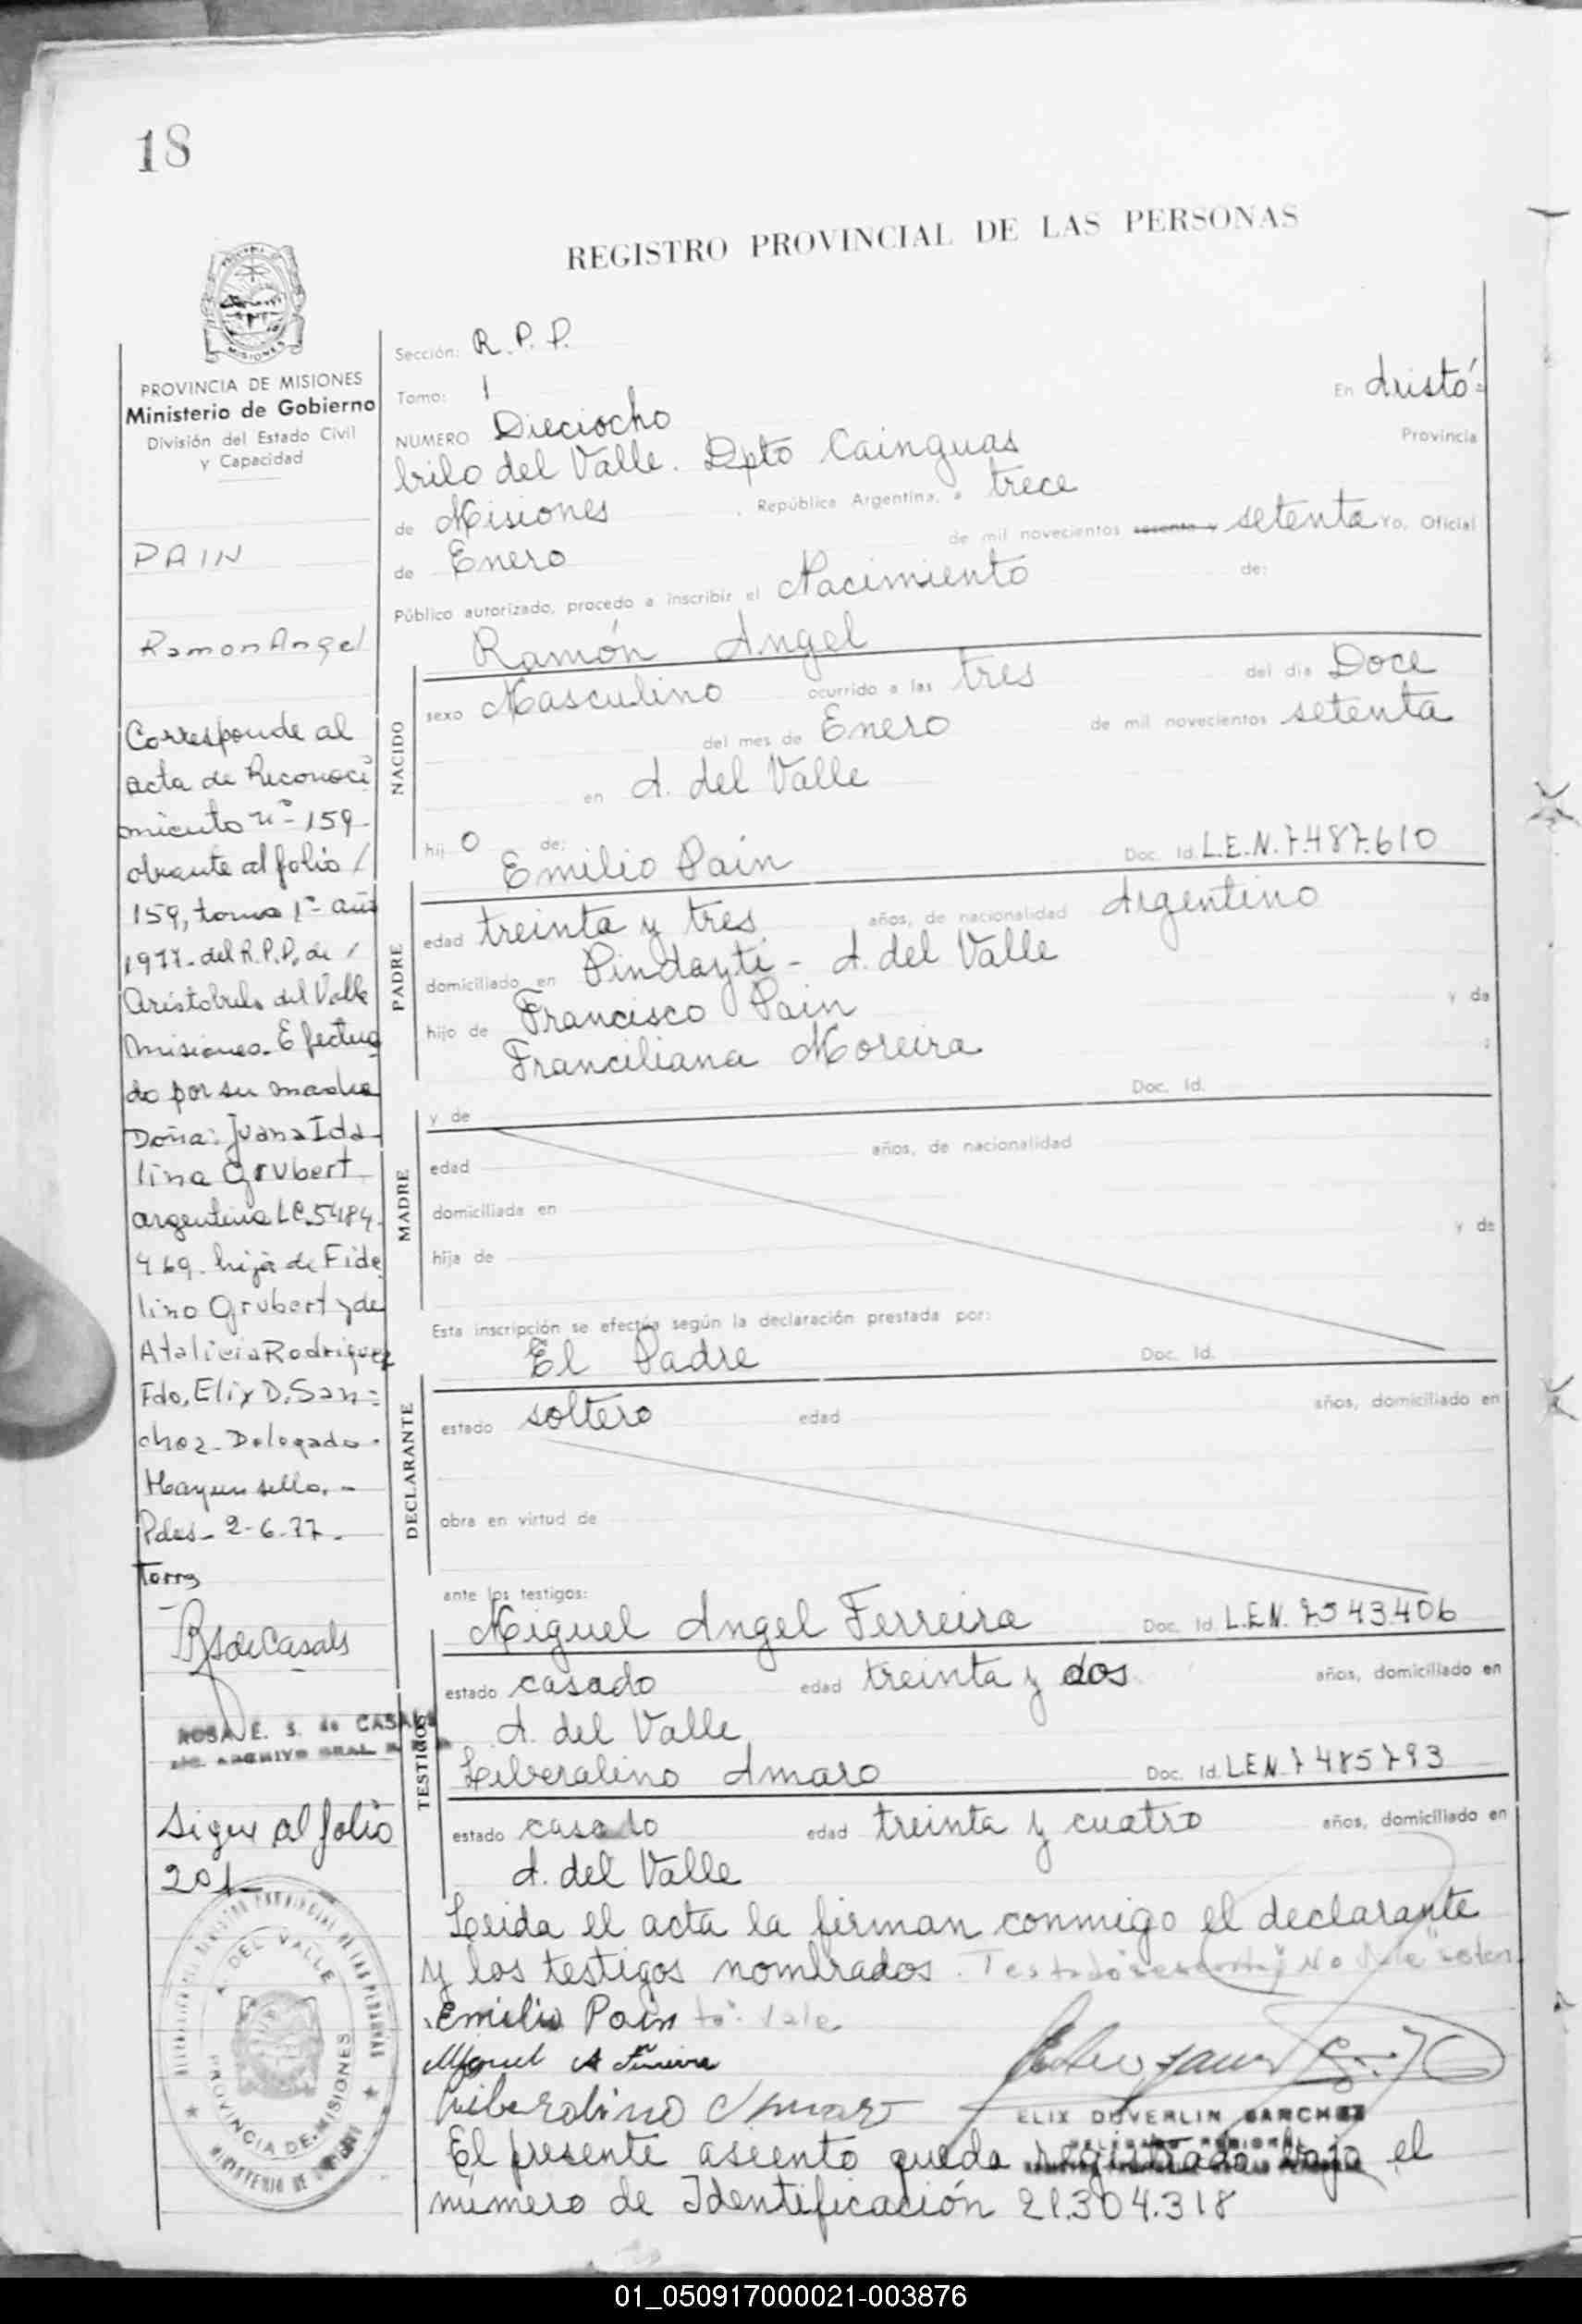 18
REGISTRO PROVINCIAL DE LAS PERSONAS
MISIONES
PROVINCIA DE MISIONES
Ministerio de Gobierno
División del Estado Civil
y Capacidad
PAIN
Ramon Angel
Corresponde al
acta de Reconoci
miento nº 159
obrante al folio /
159, tomo 1º año
1977. del R.P.P. de /
Aristobulo del Valle
Misiones. Efectua
do por su madre
Doña: Juana Ida-
lina Grubert
argentina LC. 5484.
469. hija de Fide
lino Grubert y de
Atalicia Rodriguez
Fdo. Elix D. San=
chez. Delegado.
Hay un sello. -
Pdas. 2-6-77.
Torres
RS de Casals
ROSA E. S. de CASALS
Sigue al folio
201
A. DEL VALLE
PROVINCIA DE MISIONES
Sección: R. P. P.
Tomo: 1
En Aristó=
NUMERO Dieciocho
Provincia
bulo del Valle. Dpto Cainguas
de Misiones , República Argentina, a trece
de Enero de mil novecientos sesenta y setenta Yo, Oficial
Público autorizado, procedo a inscribir el Nacimiento de:
Ramón Angel
NACIDO
sexo Masculino ocurrido a las tres del día Doce
del mes de Enero de mil novecientos setenta
en A. del Valle
hij o de:
Emilio Pain Doc. Id. L.E.N. 7.487.610
PADRE
edad treinta y tres años, de nacionalidad Argentino
domiciliado en Pindayti - A. del Valle
hijo de Francisco Pain y de
Franciliana Moreira
y de Doc. Id.
MADRE
edad años, de nacionalidad
domiciliada en
hija de y de
Esta inscripción se efectúa según la declaración prestada por:
El Padre Doc. Id.
DECLARANTE
estado soltero edad años, domiciliado en
obra en virtud de
ante los testigos:
Miguel Angel Ferreira Doc. Id. L.E.N. 7.543.406
TESTIGOS
estado casado edad treinta y dos años, domiciliado en
A. del Valle
Liberalino Amaro Doc. Id. L.E.N. 7485793
estado casado edad treinta y cuatro años, domiciliado en
A. del Valle
Leida el acta la firman conmigo el declarante
y los testigos nombrados. Testado "sesenta y" No Vale "seten
Emilio Pain ta" Vale.
Miguel A Ferreira
Liberalino Amaro
ELIX DUVERLIN SANCHEZ
DELEGADO REGIONAL
El presente asiento queda registrado bajo el
número de Identificación 21.304.318
01_050917000021-003876